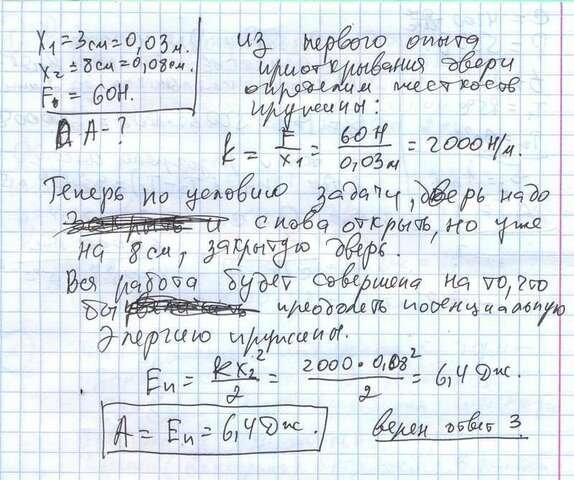 x₁ = 3см = 0,03 м.
x₂ = 8см = 0,08см.
F₁ = 60Н.
A - ?
из первого опыта
приоткрывания двери
определим жесткость
пружины:
k = F/x₁ = 60Н/0,03м = 2000Н/м.
Теперь по условию задачи, дверь надо
и снова открыть, но уже
на 8см, закрытую дверь.
Вся работа будет совершена на то, что
бы преодолеть потенциальную
энергию пружины.
Eп = kx₂²/2 = 2000·0,08²/2 = 6,4 Дж.
A = Eп = 6,4 Дж.
верен ответ 3